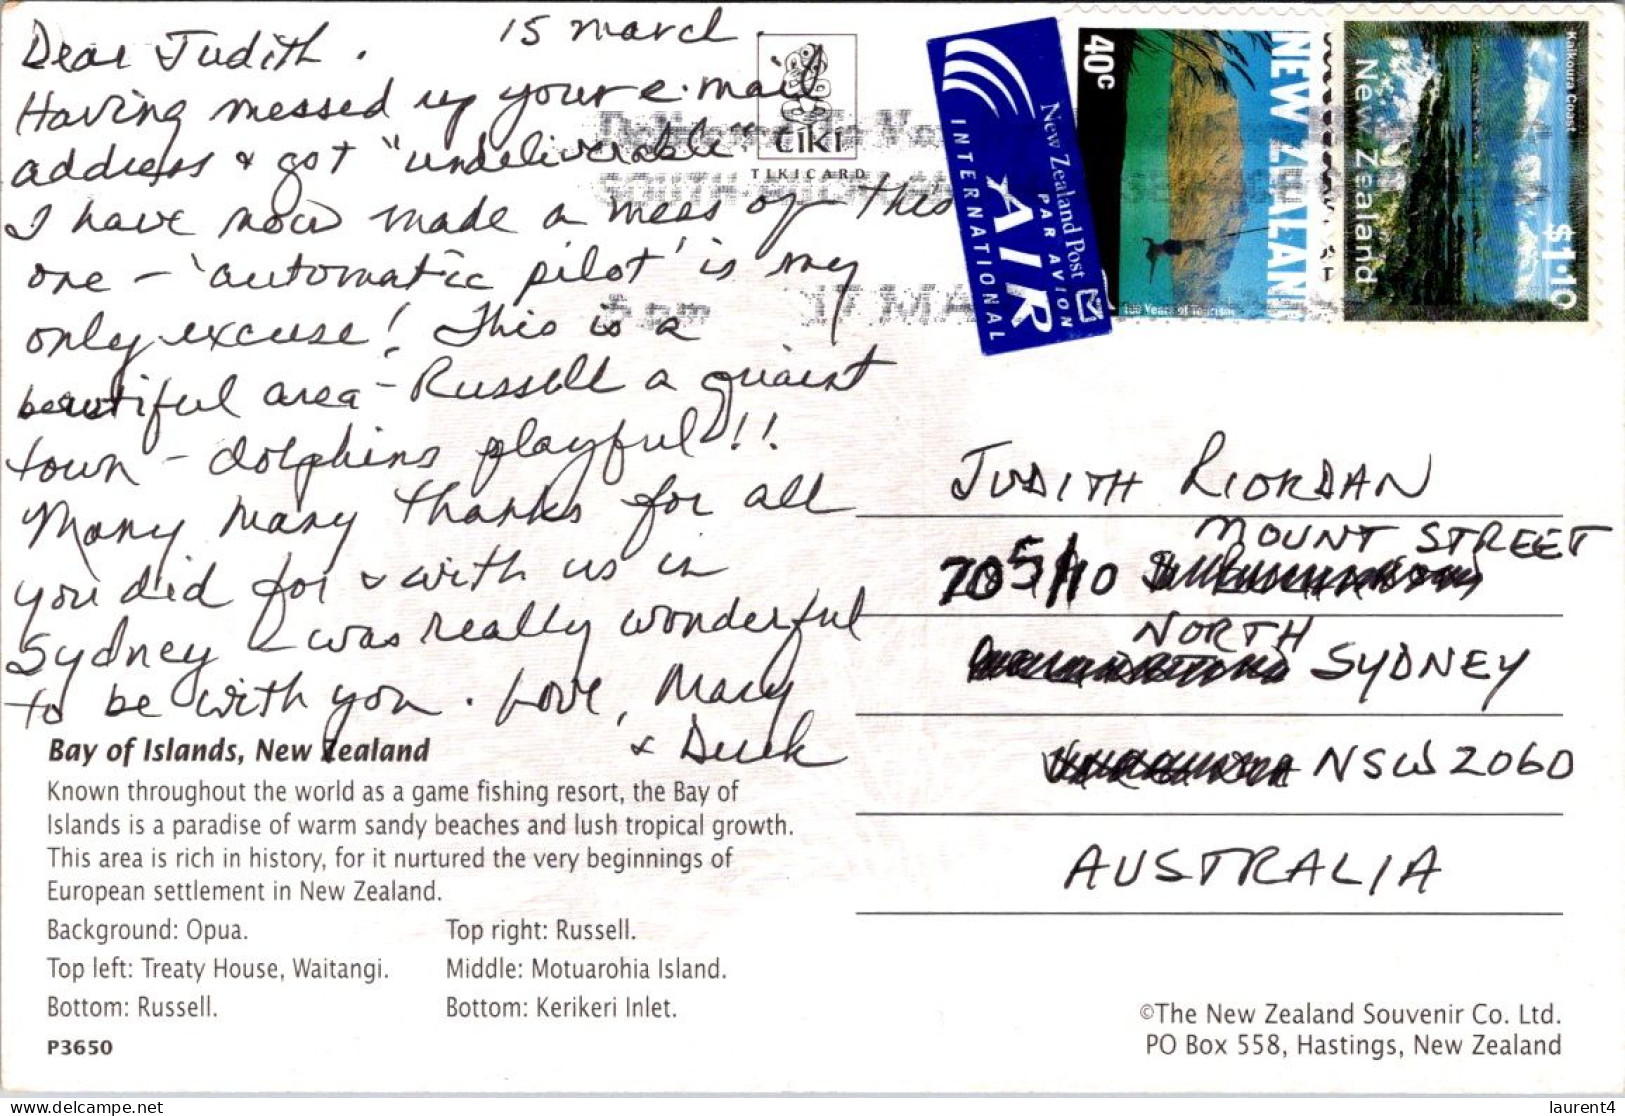 15 march.
Dear Judith.
Having messed up your e.mail
address & got "undeliverable".
I have now made a mess of this
one - 'automatic pilot' is my
only excuse! This is a
beautiful area - Russell a quaint
town - dolphins playful!!
Many many thanks for all
you did for & with us in
Sydney - was really wonderful
to be with you. Love, Mary
& Duck
tiki
TIKICARD
17 MA
New Zealand Post
PAR AVION
AIR
INTERNATIONAL
40c
NEW ZEALAND
100 Years of Tourism
Kaikoura Coast
New Zealand
$1.10
JUDITH RIORDAN
MOUNT STREET
705/110
NORTH
SYDNEY
NSW 2060
AUSTRALIA
Bay of Islands, New Zealand
Known throughout the world as a game fishing resort, the Bay of
Islands is a paradise of warm sandy beaches and lush tropical growth.
This area is rich in history, for it nurtured the very beginnings of
European settlement in New Zealand.
Background: Opua.
Top right: Russell.
Top left: Treaty House, Waitangi.
Middle: Motuarohia Island.
Bottom: Russell.
Bottom: Kerikeri Inlet.
P3650
©The New Zealand Souvenir Co. Ltd.
PO Box 558, Hastings, New Zealand
delcampe.net
laurent4